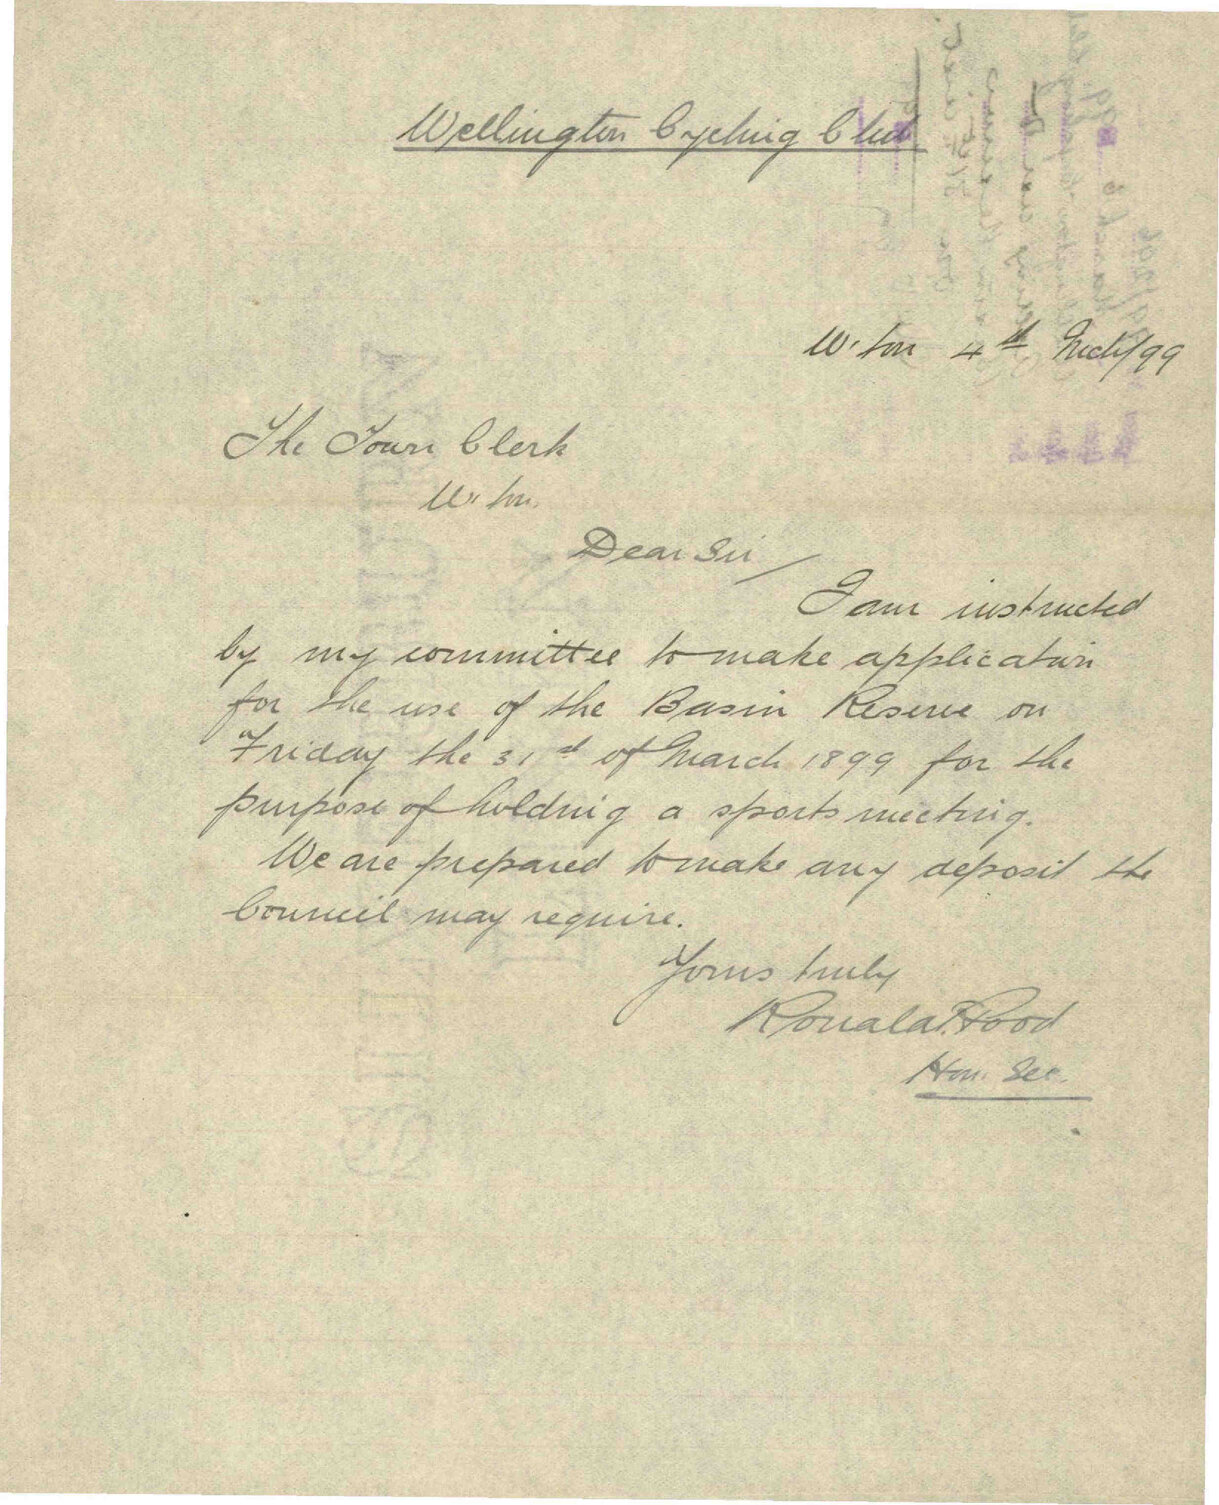 Wellington Cycling Club
W'ton 4th Mch/99
The Town Clerk
W'ton.
Dear Sir/
I am instructed
by my committee to make application
for the use of the Basin Reserve on
Friday the 31st of March 1899 for the
purpose of holding a sports meeting.
We are prepared to make any deposit the
Council may require.
Yours truly
Ronald
Hon. Sec.